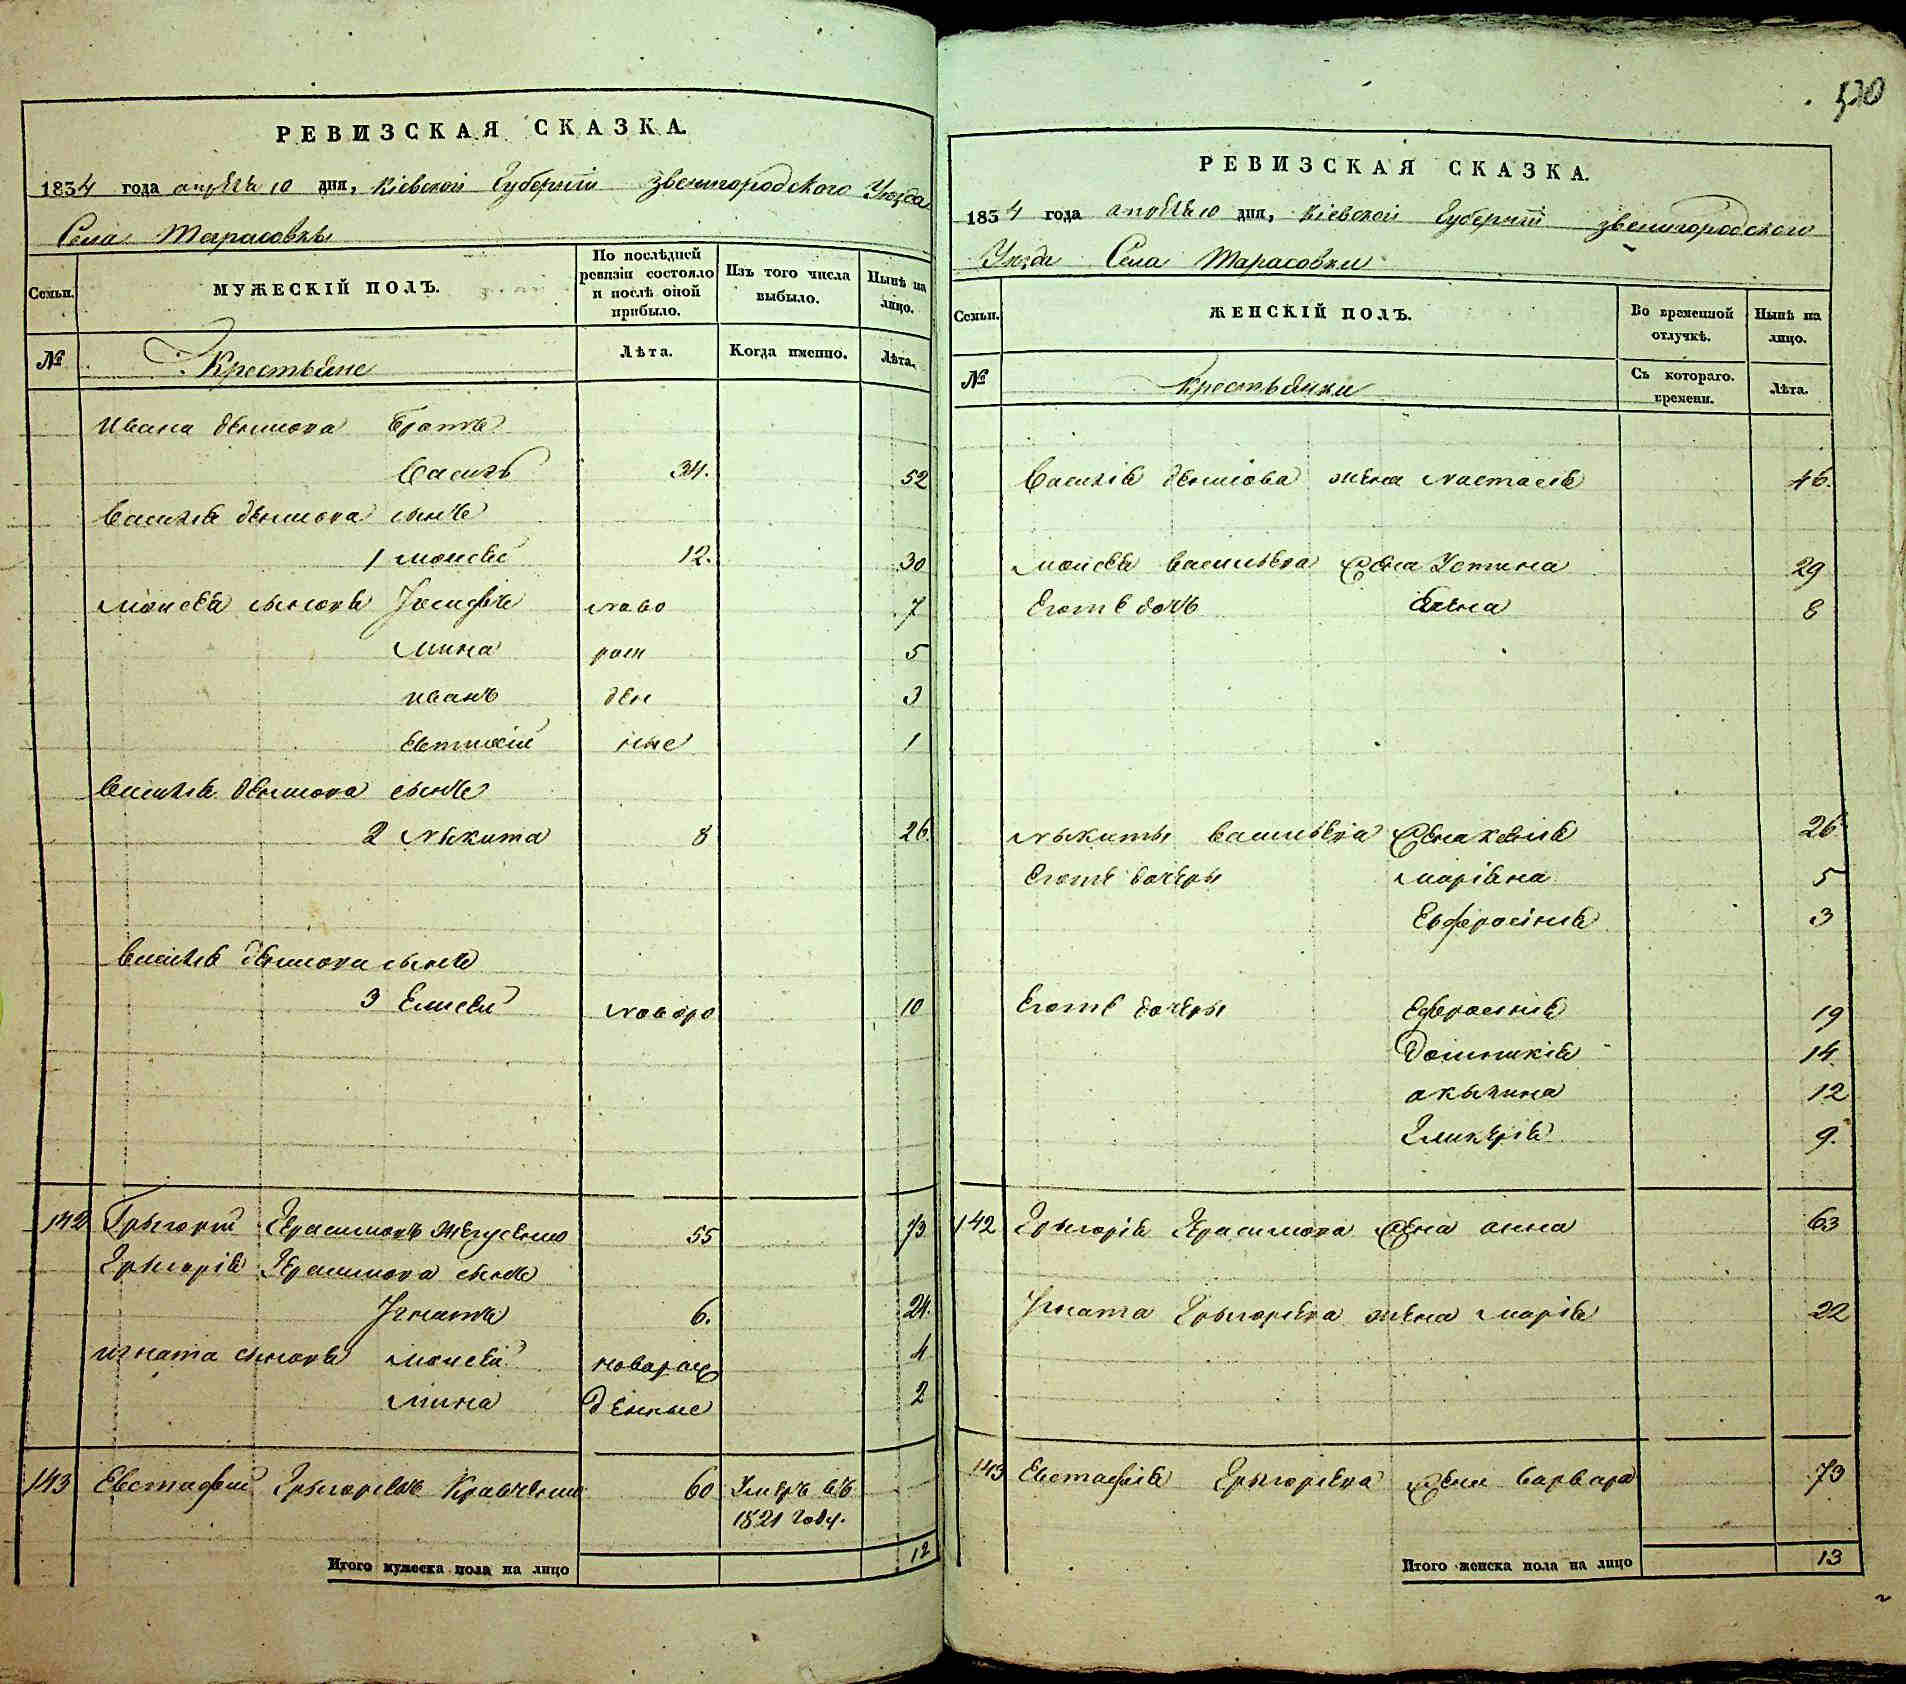 РЕВИЗСКАЯ СКАЗКА.
1834 года апреля 10 дня, Кіевской Губерніи Звенигородского Уезда
Села Тарасовки
Семьи.
МУЖЕСКІЙ ПОЛЪ.
По послѣдней ревизіи состояло и послѣ оной прибыло.
Изъ того числа выбыло.
Нынѣ на лицо.
№
Крестьяне
Лѣта.
Когда именно.
Лѣта.
Ивана Демиова братъ
Василь 34. 52
Василя Демиова сынъ
1 Моисей 12. 30
Моисея сыновя Іосифъ ново 7
Мина рож 5
Иванъ ден 3
Евтихій ные 1
Василя Демиова сынъ
2 Мыкита 8 26.
Василя Демиова сынъ
3 Елисей новоро 10
142 Грыгорій Герасимовъ 55 73
Грыгорія Герасимова сынъ
Игнатъ 6. 24.
Игната сыновя Моисей новорож 4
Мина денные 2
143 Евстафій Грыгориевъ Кравченко 60 Умеръ въ
1821 году.
Итого мужеска пола на лицо 12
520
РЕВИЗСКАЯ СКАЗКА.
1834 года апреля 10 дня, Кіевской Губерніи Звенигородского
Уезда Села Тарасовки
Семьи.
ЖЕНСКІЙ ПОЛЪ.
Во временной отлучкѣ.
Нынѣ на лицо.
№
Крестьянки
Съ котораго. времени.
Лѣта.
Василя Демиова жена Настасия 46.
Моисея Васильева жена Устина 29
Егоже дочь Елена 8
Мыкиты Васильева жена Ксения 26
Егоже дочеры Маріяна 5
Евфросіния 3
Егоже дочеры Ефросиния 19
Домникія 14
Акылина 12
Гликерія 9.
142 Грыгорія Герасимова жена Анна 63
Игната Грыгориева жена Марія 22
143 Евстафія Грыгориева жена Варвара 73
Итого женска пола на лицо 13